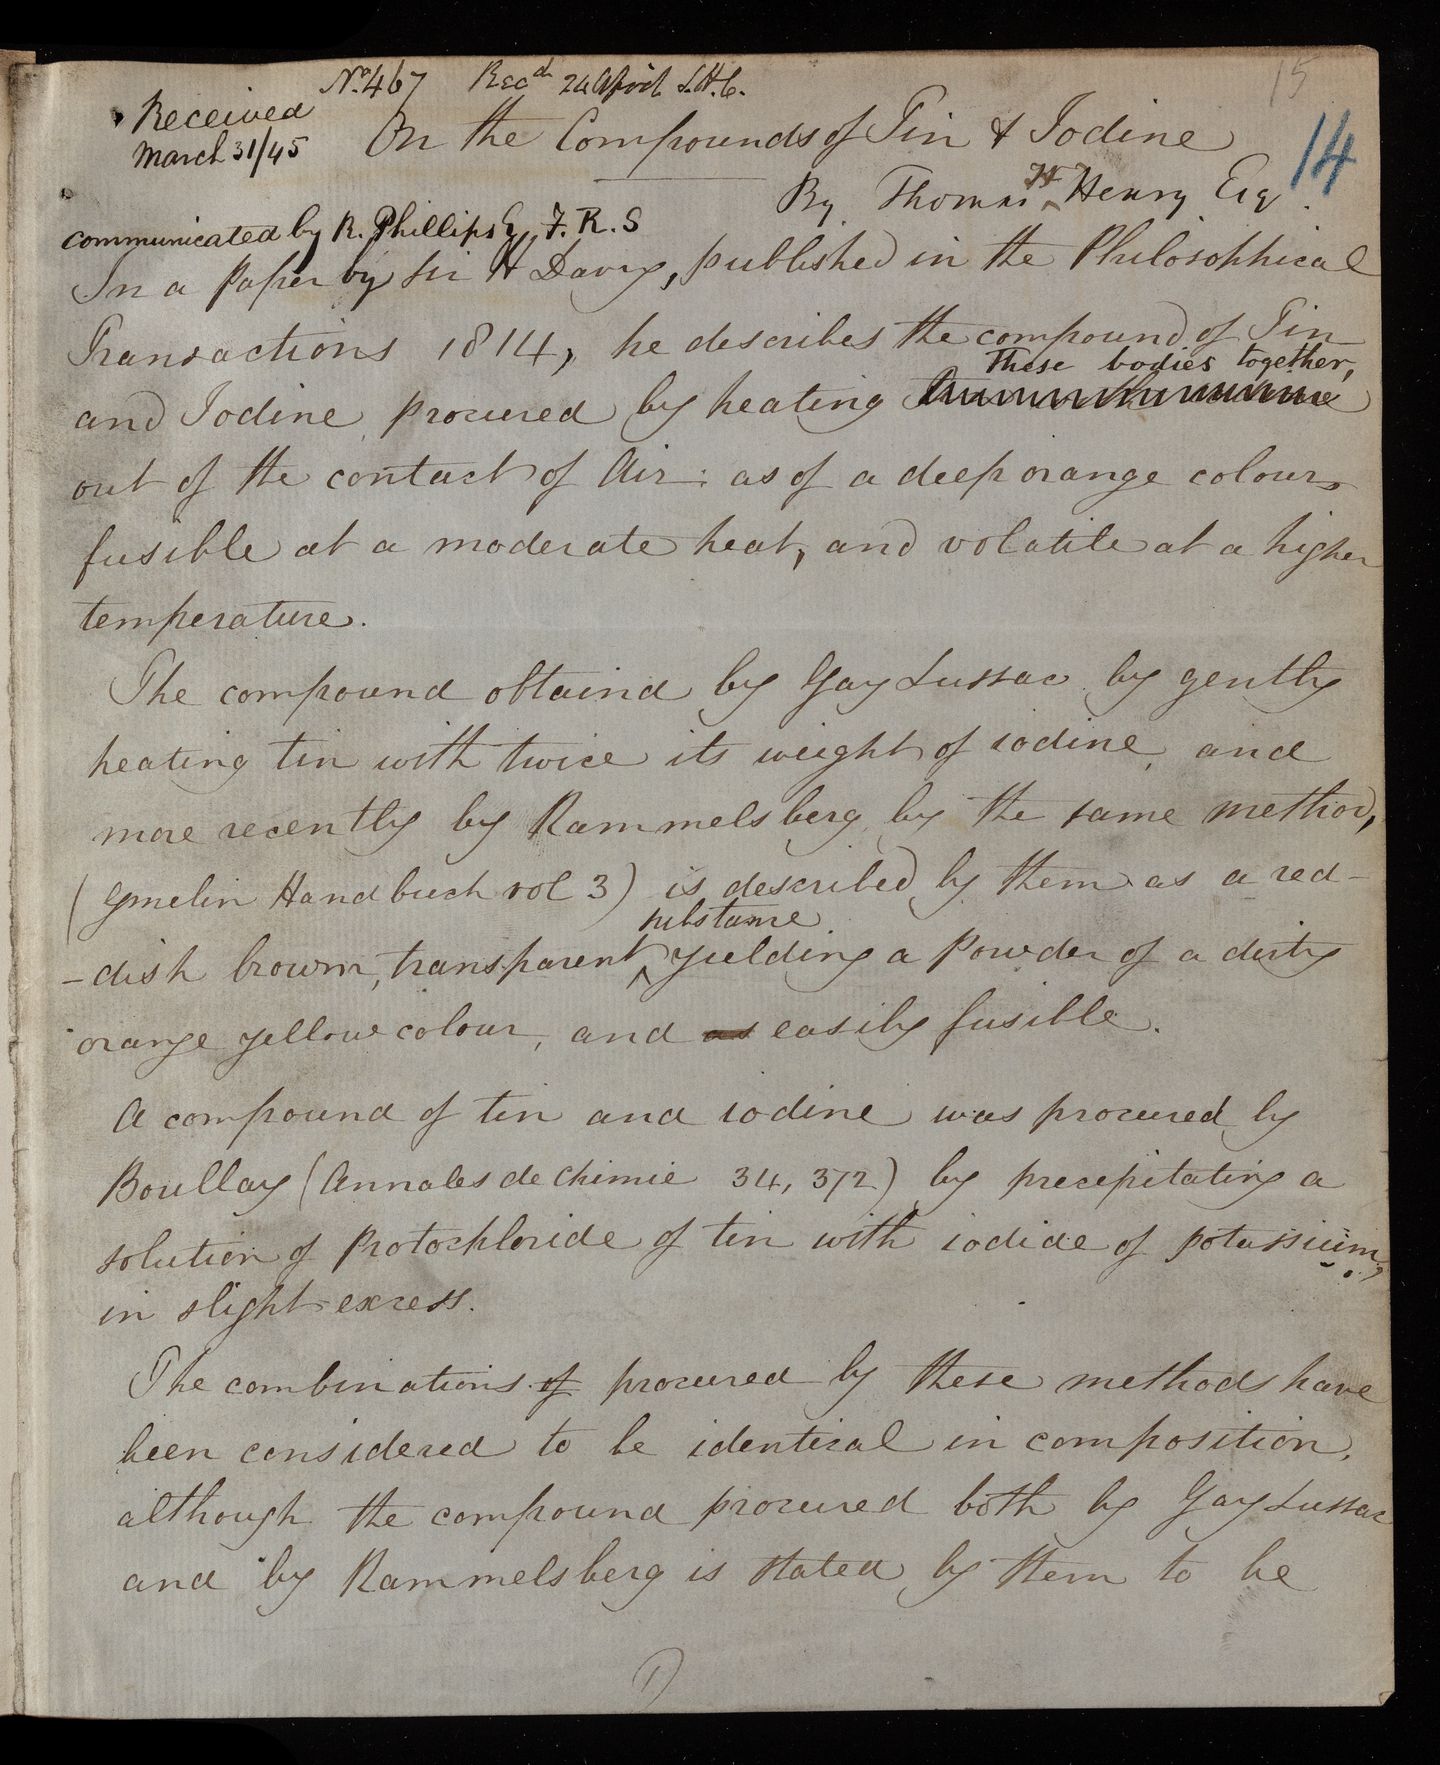 No. 467 Recd 24 April S.H.C.
15
Received
March 31/45
On the Compounds of Tin & Iodine
14
By Thomas H Henry Esq.
communicated by R. Phillips Esq. F.R.S
In a Paper by Sir H Davy, published in the Philosophical
Transactions 1814, he describes the compound of Tin
These bodies together,
and Iodine procured by heating
out of the contact of Air: as of a deep orange colour,
fusible at a moderate heat, and volatile at a higher
temperature.
The compound obtaind by Gay Lussac by gently
heating tin with twice its weight of iodine, and
more recently by Rammelsberg by the same method,
(Gmelin Handbuch vol 3) is described by them as a red-
substance
-dish brown, transparent ^ yielding a Powder of a dirty
orange yellow colour, and as easily fusible.
A compound of tin and iodine was procured by
Boullay (Annales de Chimie 34, 372) by precipitating a
solution of Protochloride of tin with iodide of potassium,
in slight excess.
The combinations of procured by these methods have
been considered to be identical in composition,
although the compound procured both by Gay Lussac
and by Rammelsberg is stated by them to be
1)